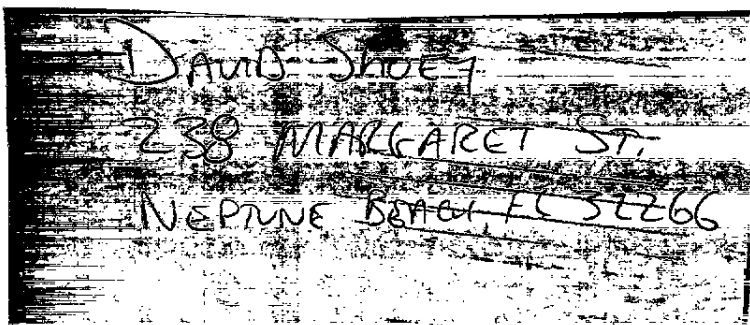 DAVID SHUEY
238 MARGARET ST.
NEPTUNE BEACH FL 32266